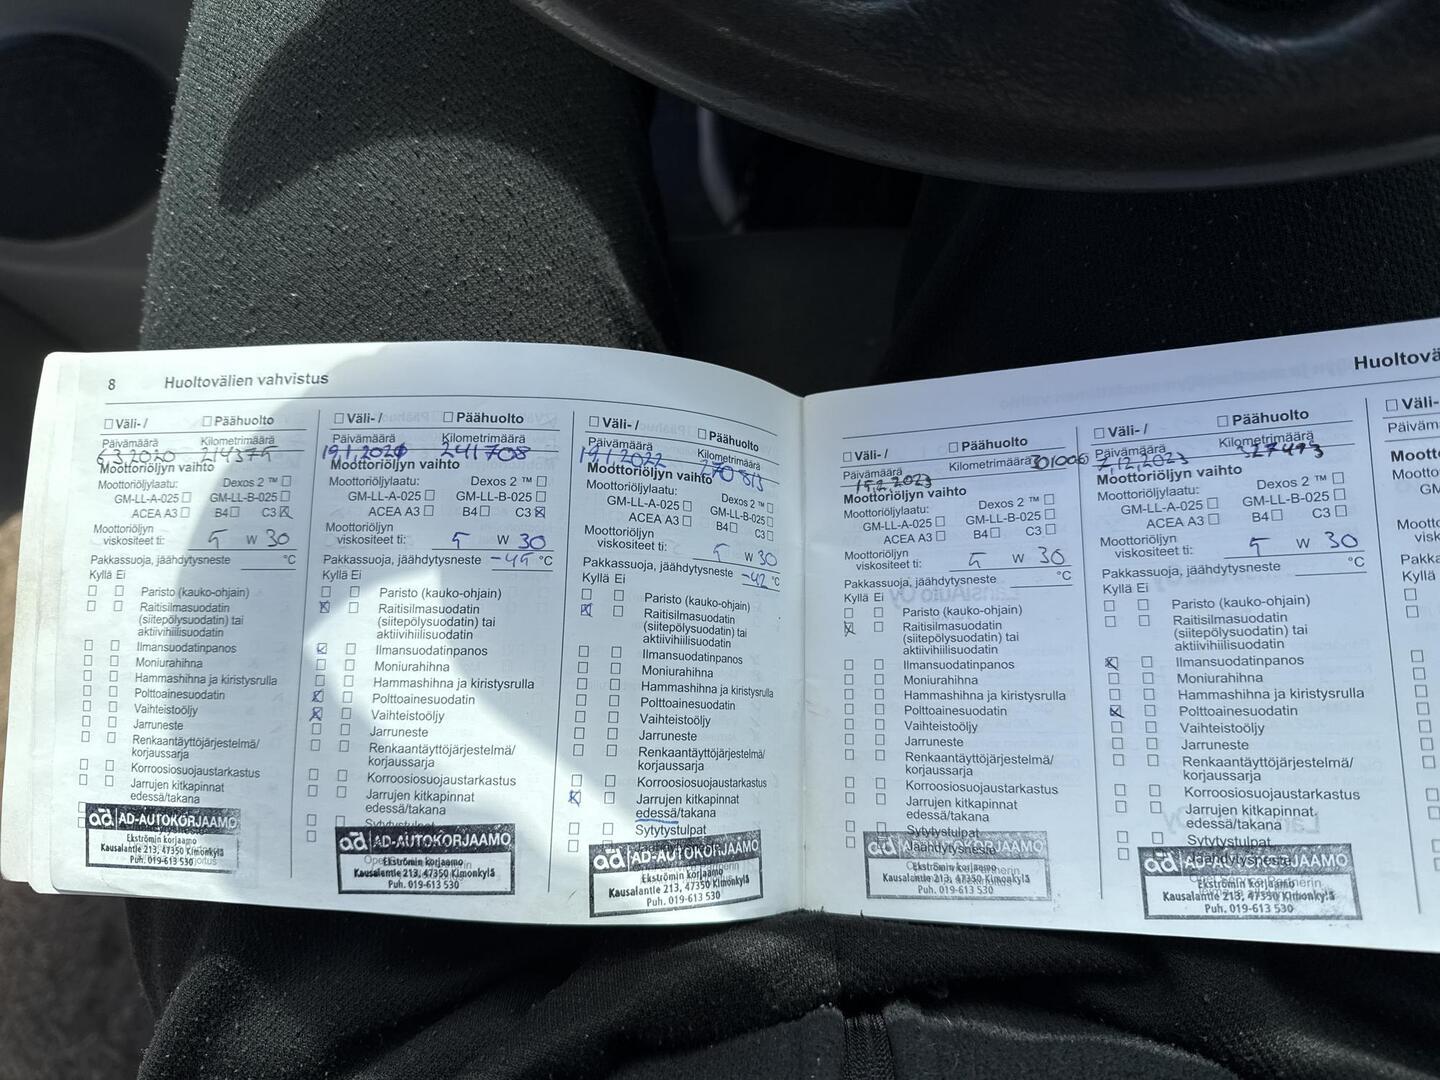 8 Huoltovälien vahvistus
Väli- / Päähuolto
Päivämäärä Kilometrimäärä
6.3.2020 214375
Moottoriöljyn vaihto
Moottoriöljylaatu: Dexos 2 ™
GM-LL-A-025 GM-LL-B-025
ACEA A3 B4 C3
Moottoriöljyn
viskositeet ti: 5 W 30
Pakkassuoja, jäähdytysneste °C
Kyllä Ei
Paristo (kauko-ohjain)
Raitisilmasuodatin
(siitepölysuodatin) tai
aktiivihiilisuodatin
Ilmansuodatinpanos
Moniurahihna
Hammashihna ja kiristysrulla
Polttoainesuodatin
Vaihteistoöljy
Jarruneste
Renkaantäyttöjärjestelmä/
korjaussarja
Korroosiosuojaustarkastus
Jarrujen kitkapinnat
edessä/takana
ad AD-AUTOKORJAAMO
Ekströmin korjaamo
Kausalantie 213, 47350 Kimonkylä
Puh. 019-613 530
Väli- / Päähuolto
Päivämäärä Kilometrimäärä
241708
Moottoriöljyn vaihto
Moottoriöljylaatu: Dexos 2 ™
GM-LL-A-025 GM-LL-B-025
ACEA A3 B4 C3
Moottoriöljyn
viskositeet ti: 5 W 30
Pakkassuoja, jäähdytysneste -45 °C
Kyllä Ei
Paristo (kauko-ohjain)
Raitisilmasuodatin
(siitepölysuodatin) tai
aktiivihiilisuodatin
Ilmansuodatinpanos
Moniurahihna
Hammashihna ja kiristysrulla
Polttoainesuodatin
Vaihteistoöljy
Jarruneste
Renkaantäyttöjärjestelmä/
korjaussarja
Korroosiosuojaustarkastus
Jarrujen kitkapinnat
edessä/takana
Sytytystulpat
ad AD-AUTOKORJAAMO
Ekströmin korjaamo
Kausalantie 213, 47350 Kimonkylä
Puh. 019-613 530
Väli- / Päähuolto
Päivämäärä Kilometrimäärä
19.1.2022 270813
Moottoriöljyn vaihto
Moottoriöljylaatu: Dexos 2 ™
GM-LL-A-025 GM-LL-B-025
ACEA A3 B4 C3
Moottoriöljyn
viskositeet ti: 5 W 30
Pakkassuoja, jäähdytysneste -42 °C
Kyllä Ei
Paristo (kauko-ohjain)
Raitisilmasuodatin
(siitepölysuodatin) tai
aktiivihiilisuodatin
Ilmansuodatinpanos
Moniurahihna
Hammashihna ja kiristysrulla
Polttoainesuodatin
Vaihteistoöljy
Jarruneste
Renkaantäyttöjärjestelmä/
korjaussarja
Korroosiosuojaustarkastus
Jarrujen kitkapinnat
edessä/takana
Sytytystulpat
ad AD-AUTOKORJAAMO
Ekströmin korjaamo
Kausalantie 213, 47350 Kimonkylä
Puh. 019-613 530
Huoltovä
Väli- / Päähuolto
Päivämäärä Kilometrimäärä 301006
15.2.2023
Moottoriöljyn vaihto
Moottoriöljylaatu: Dexos 2 ™
GM-LL-A-025 GM-LL-B-025
ACEA A3 B4 C3
Moottoriöljyn
viskositeet ti: 5 W 30
Pakkassuoja, jäähdytysneste °C
Kyllä Ei
Paristo (kauko-ohjain)
Raitisilmasuodatin
(siitepölysuodatin) tai
aktiivihiilisuodatin
Ilmansuodatinpanos
Moniurahihna
Hammashihna ja kiristysrulla
Polttoainesuodatin
Vaihteistoöljy
Jarruneste
Renkaantäyttöjärjestelmä/
korjaussarja
Korroosiosuojaustarkastus
Jarrujen kitkapinnat
edessä/takana
Sytytystulpat
Jäähdytysneste
ad AD-AUTOKORJAAMO
Ekströmin korjaamo
Kausalantie 213, 47350 Kimonkylä
Puh. 019-613 530
Väli- / Päähuolto
Päivämäärä Kilometrimäärä
7.12.2023 327493
Moottoriöljyn vaihto
Moottoriöljylaatu: Dexos 2 ™
GM-LL-A-025 GM-LL-B-025
ACEA A3 B4 C3
Moottoriöljyn
viskositeet ti: 5 W 30
Pakkassuoja, jäähdytysneste °C
Kyllä Ei
Paristo (kauko-ohjain)
Raitisilmasuodatin
(siitepölysuodatin) tai
aktiivihiilisuodatin
Ilmansuodatinpanos
Moniurahihna
Hammashihna ja kiristysrulla
Polttoainesuodatin
Vaihteistoöljy
Jarruneste
Renkaantäyttöjärjestelmä/
korjaussarja
Korroosiosuojaustarkastus
Jarrujen kitkapinnat
edessä/takana
Sytytystulpat
Jäähdytysneste
ad AD-AUTOKORJAAMO
Ekströmin korjaamo
Kausalantie 213, 47350 Kimonkylä
Puh. 019-613 530
Väli-
Päiväm
Moott
Mootto
Mooto
v
Pakka
Kyllä